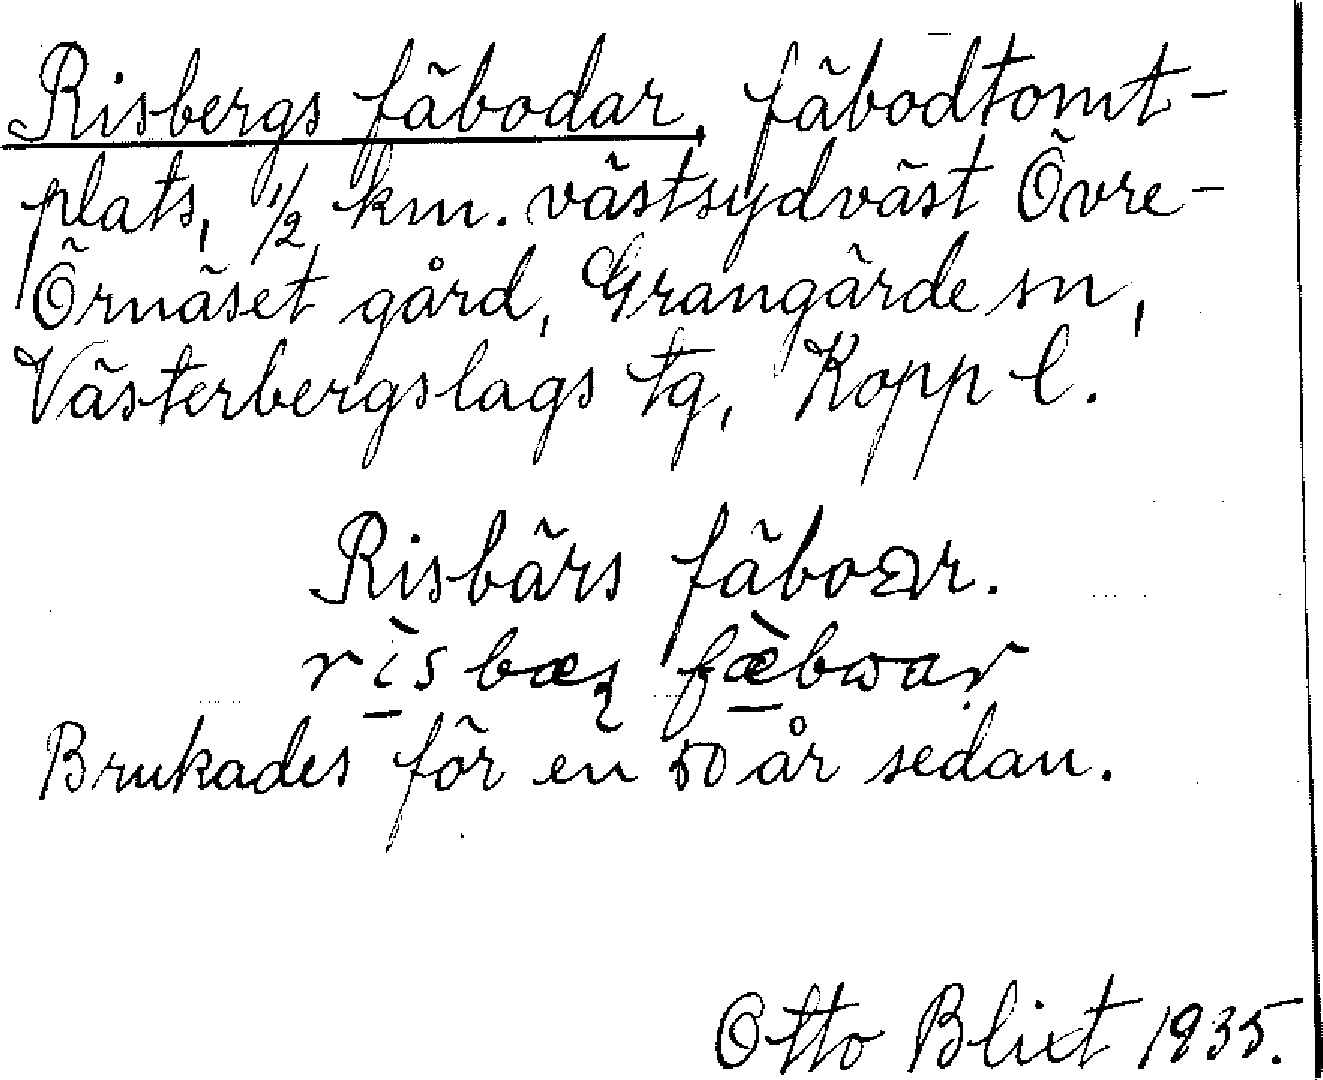 Risbergs fäbodar, fäbodtomt-
plats, 1/2 km. västsydväst Övre-
Örnäset gård, Grangärde sn,
Västerbergslags tg, Kopp l.
Risbärs fäboar.
rìs bæʂ fæ̀bωar
Brukades för en 50 år sedan.
Otto Blixt 1935.